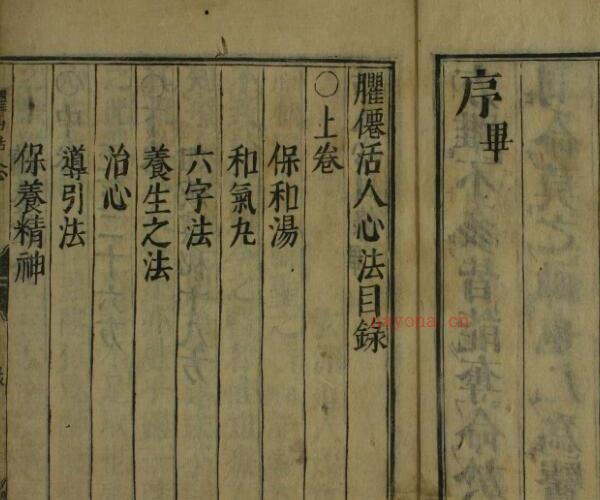 序畢
臞僊活人心法目錄
○上卷
保和湯
和氣丸
六字法
養生之法
治心
導引法
保養精神
nayona.cn